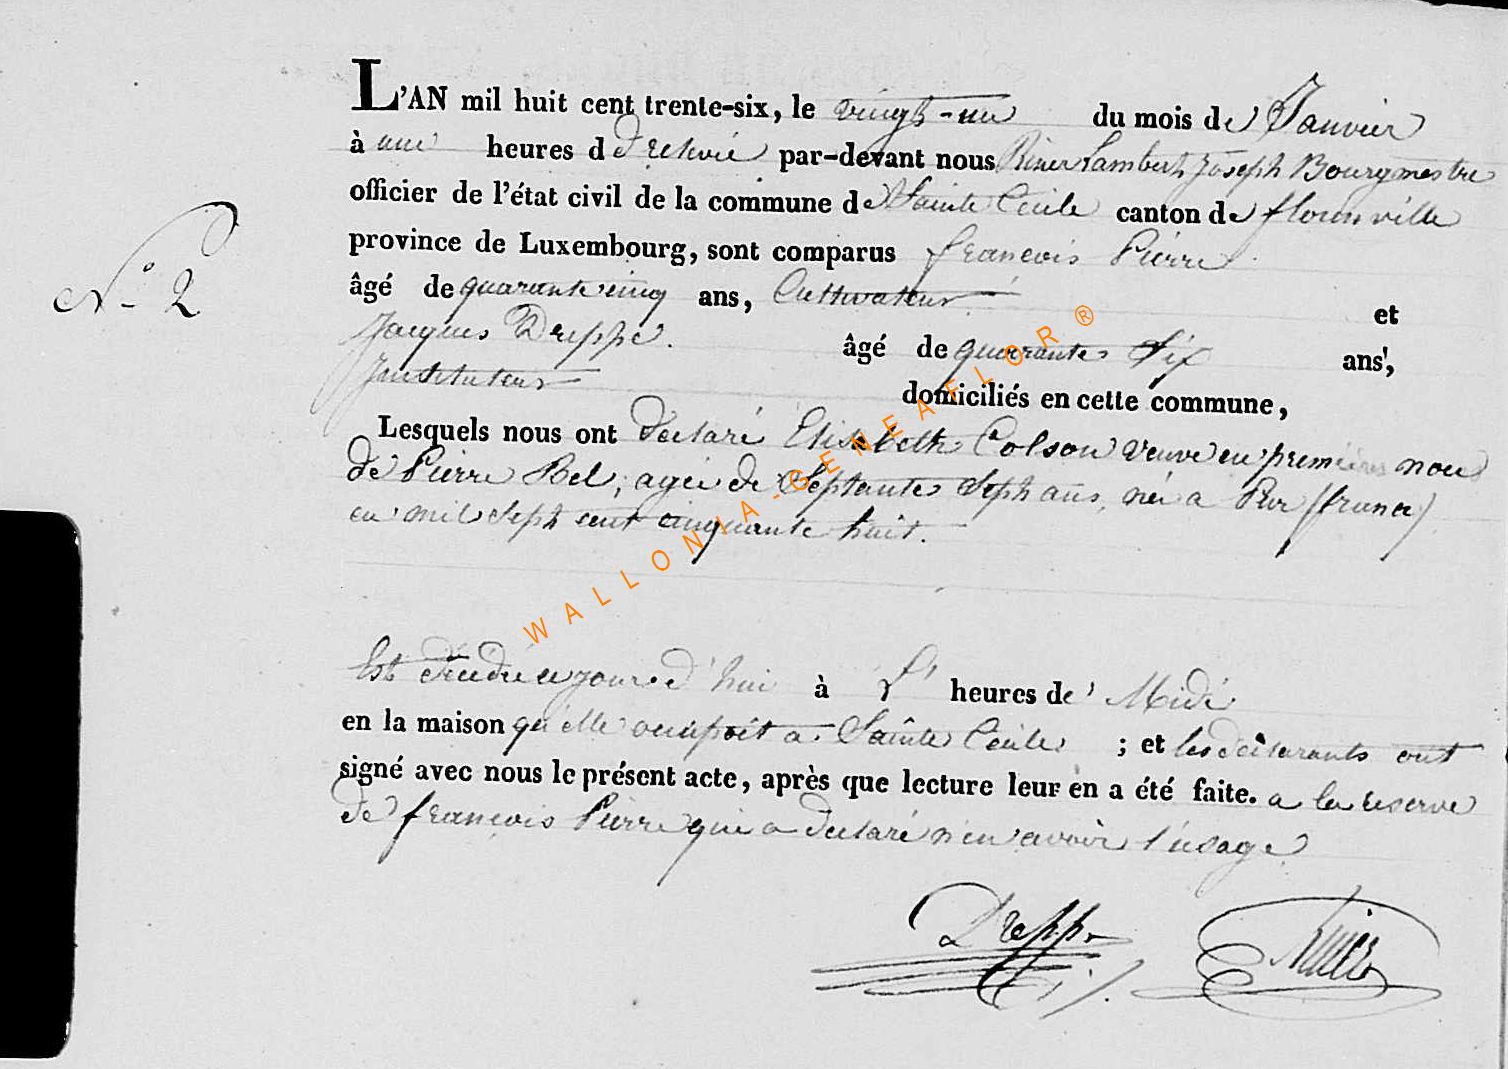 L'AN mil huit cent trente-six, le vingt-un du mois de Janvier
à une heures d de relevé par-devant nous Riner Lambert Joseph Bourgmestre
officier de l'état civil de la commune de Sainte Cécile canton de florenville
province de Luxembourg, sont comparus françois Pierre
N° 2
âgé de quarante cinq ans, Cultivateur et
Jacques Dreppe. âgé de quarante Six ans,
Instituteur
domiciliés en cette commune,
Lesquels nous ont declaré Elisabeth Colson veuve en premières noces
de Pierre Bel, agée de Septante Sept ans, née a Pur (france)
en mil Sept cent cinquante huit.
Est décédée ce jourd'hui à heures de Midi
en la maison qu'elle occupoit a Sainte Cécile ; et les déclarants ont
signé avec nous le présent acte, après que lecture leur en a été faite. a la reserve
de françois Pierre qui a declaré n'en avoir l'usage
Dreppe Riner
WALLONIA-GENEAFLOR ®